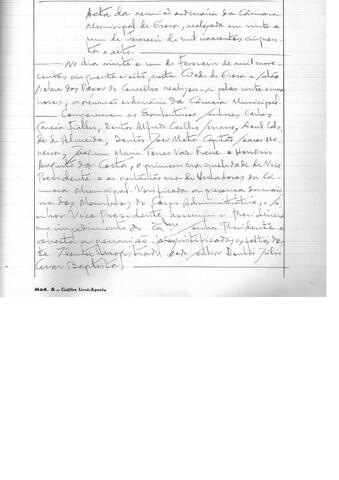 Acta da reunião ordinária da Câmara
Municipal de Évora, realizada em vinte e
um de Fevereiro de mil novecentos cinquen-
ta e oito.
No dia vinte e um de Fevereiro de mil nove-
centos cinquenta e oito, nesta Cidade de Évora e salão
nobre dos Paços do Concelho realizou-se pelas vinte e uma
horas, a reunião ordinária da Câmara Municipal.
Compareceram os Excelentíssimos senhores Carlos
Garcia Fialho, Doutor Alfredo Coelho, Raul
de Almeida, Doutor José Mata Capitão, Soares
Maria Torres Vaz Freire e Honório
Augusto da Costa, o primeiro na qualidade de Vice
Presidente e os restantes na de Vereadores da Câ-
mara Municipal. Verificada a presença da maio-
ria dos Membros do Corpo Administrativo, o Se-
nhor Vice Presidente, assumiu a Presidência
no impedimento do senhor Presidente e
aberta a reunião justificadas as faltas do
senhor Doutor Júlio
Cesar Baptista.
Mod. 6 —